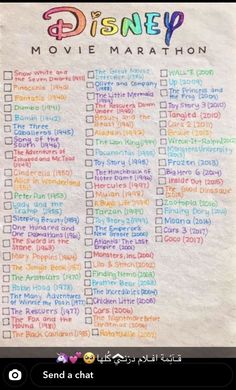 Disney
MOVIE MARATHON
Snow White and
the Seven Dwarfs (1937)
Pinocchio (1940)
Fantasia (1940)
Dumbo (1941)
Bambi (1942)
The Three
Caballeros (1945)
Song of the
South (1946)
The Adventures of
Ichabod and Mr. Toad
(1949)
Cinderella (1950)
Alice in Wonderland
(1951)
Peter Pan (1953)
Lady and the
Tramp (1955)
Sleeping Beauty (1959)
One Hundred and
One Dalmatians (1961)
The Sword in the
Stone (1963)
Mary Poppins (1964)
The Jungle Book (1967)
The Aristocats (1970)
Robin Hood (1973)
The Many Adventures
of Winnie the Pooh (1977)
The Rescuers (1977)
The Fox and the
Hound (1981)
The Black Cauldron (1985)
The Great Mouse
Detective (1986)
Oliver and Company
(1988)
The Little Mermaid
(1989)
The Rescuers Down
Under (1990)
Beauty and the
Beast (1991)
Aladdin (1992)
The Lion King (1994)
Pocahontas (1995)
Toy Story (1995)
The Hunchback of
Notre Dame (1996)
Hercules (1997)
Mulan (1998)
A Bug's Life (1998)
Tarzan (1999)
Toy Story 2 (1999)
The Emperor's
New Groove (2000)
Atlantis: The Lost
Empire (2001)
Monsters, Inc (2001)
Lilo & Stitch (2002)
Finding Nemo (2003)
Brother Bear (2003)
The Incredibles (2004)
Chicken Little (2005)
Cars (2006)
The Nightmare Before
Christmas (2006)
Ratatouille (2007)
WALL-E (2008)
Up (2009)
The Princess and
the Frog (2009)
Toy Story 3 (2010)
Tangled (2010)
Cars 2 (2011)
Brave (2012)
Wreck-It-Ralph (2012)
Monsters University
(2013)
Frozen (2013)
Big Hero 6 (2014)
Inside Out (2015)
The Good Dinosaur
(2015)
Zootopia (2016)
Finding Dory (2016)
Moana (2016)
Cars 3 (2017)
Coco (2017)
قائمة افلام درتني كلها
Send a chat